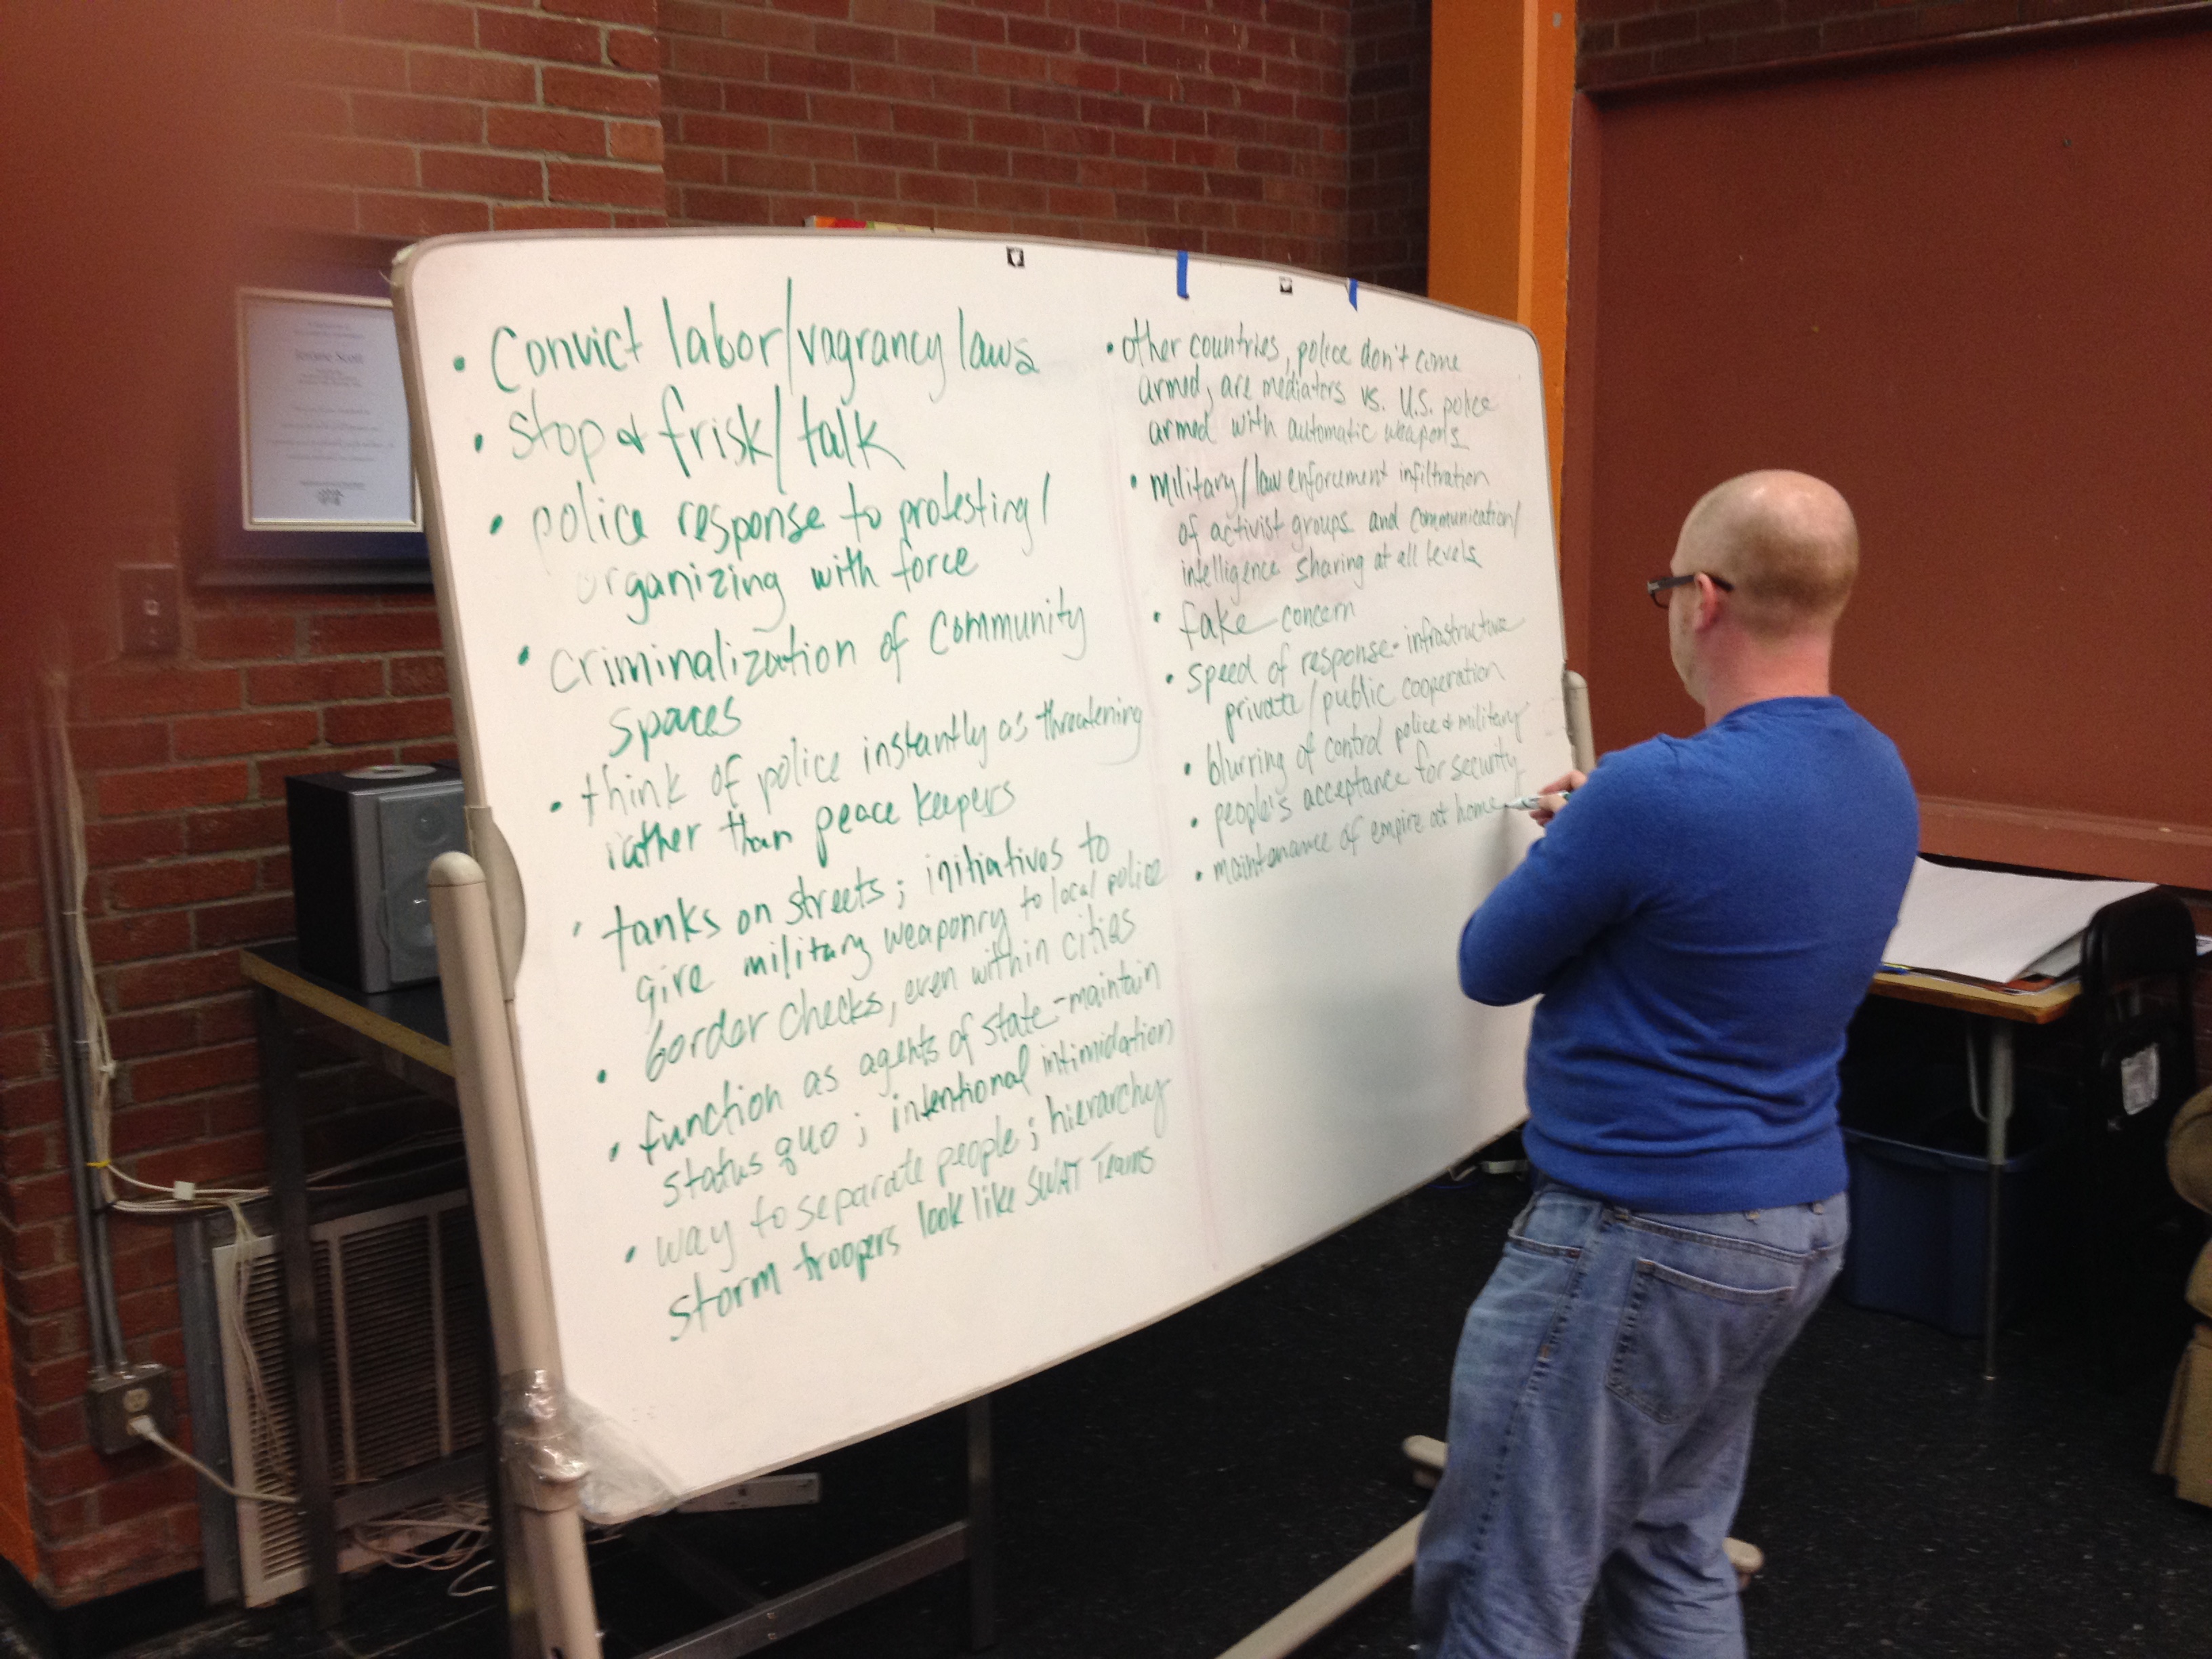 Jerome Scott
• Convict labor/vagrancy laws
• stop & frisk/talk
• police response to protesting/
organizing with force
• criminalization of community
spaces
• think of police instantly as threatening
rather than peace keepers
• tanks on streets; initiatives to
give military weaponry to local police
• border checks, even within cities
• function as agents of state-maintain
status quo; intentional intimidation
• way to separate people; hierarchy
storm troopers look like SWAT Teams
• other countries, police don't come
armed, are mediators vs. U.S. police
armed with automatic weapons
• military/law enforcement infiltration
of activist groups and communication/
intelligence sharing at all levels
• fake concern
• speed of response - infrastructure
private/public cooperation
• blurring of control police & military
• people's acceptance for security
• maintenance of empire at home